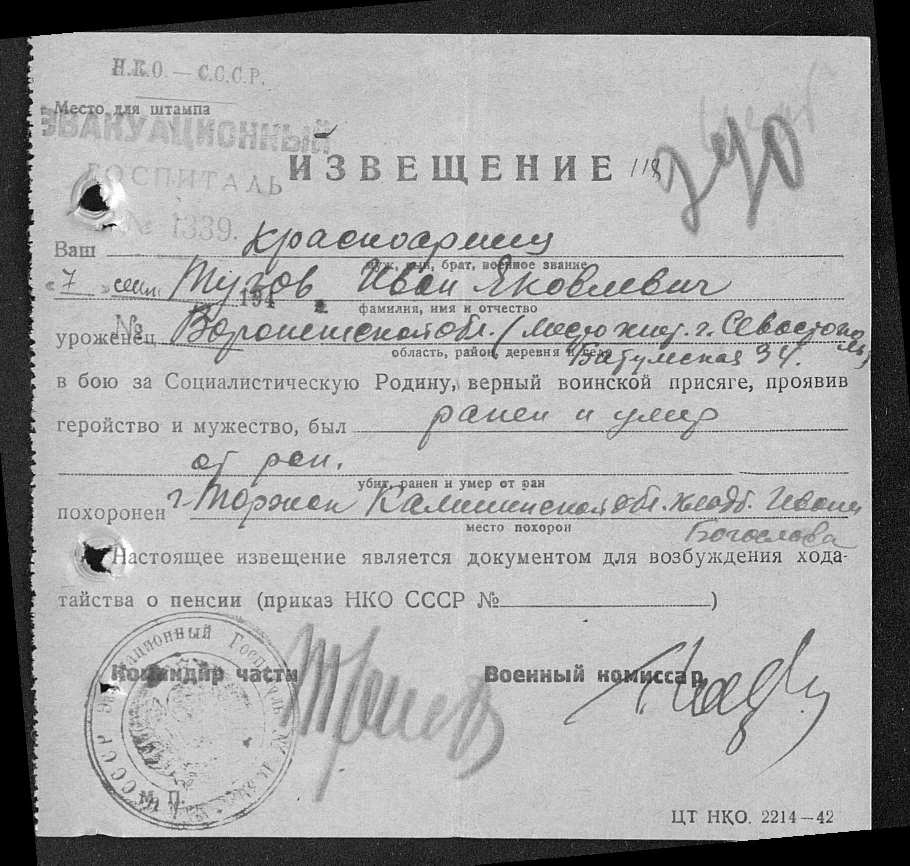 Н.К.О. — С.С.С.Р.
Место для штампа
ЭВАКУАЦИОННЫЙ
ГОСПИТАЛЬ
№ 1339.
ИЗВЕЩЕНИЕ 118
Ваш красноармеец
муж, сын, брат, военное звание
«7» сент. 194 Тугов Иван Яковлевич
фамилия, имя и отчество
№
уроженец Воронежской обл. (место жит. г. Севастополь,
область, район, деревня и село
Батумская 34.
в бою за Социалистическую Родину, верный воинской присяге, проявив
геройство и мужество, был ранен и умер
от ран.
убит, ранен и умер от ран
похоронен г. Торжок Калининской обл. кладб. Ивана
место похорон
Богослова
Настоящее извещение является документом для возбуждения хода-
тайства о пенсии (приказ НКО СССР № )
Командир части Военный комиссар
М. П.
ЦТ НКО. 2214—42